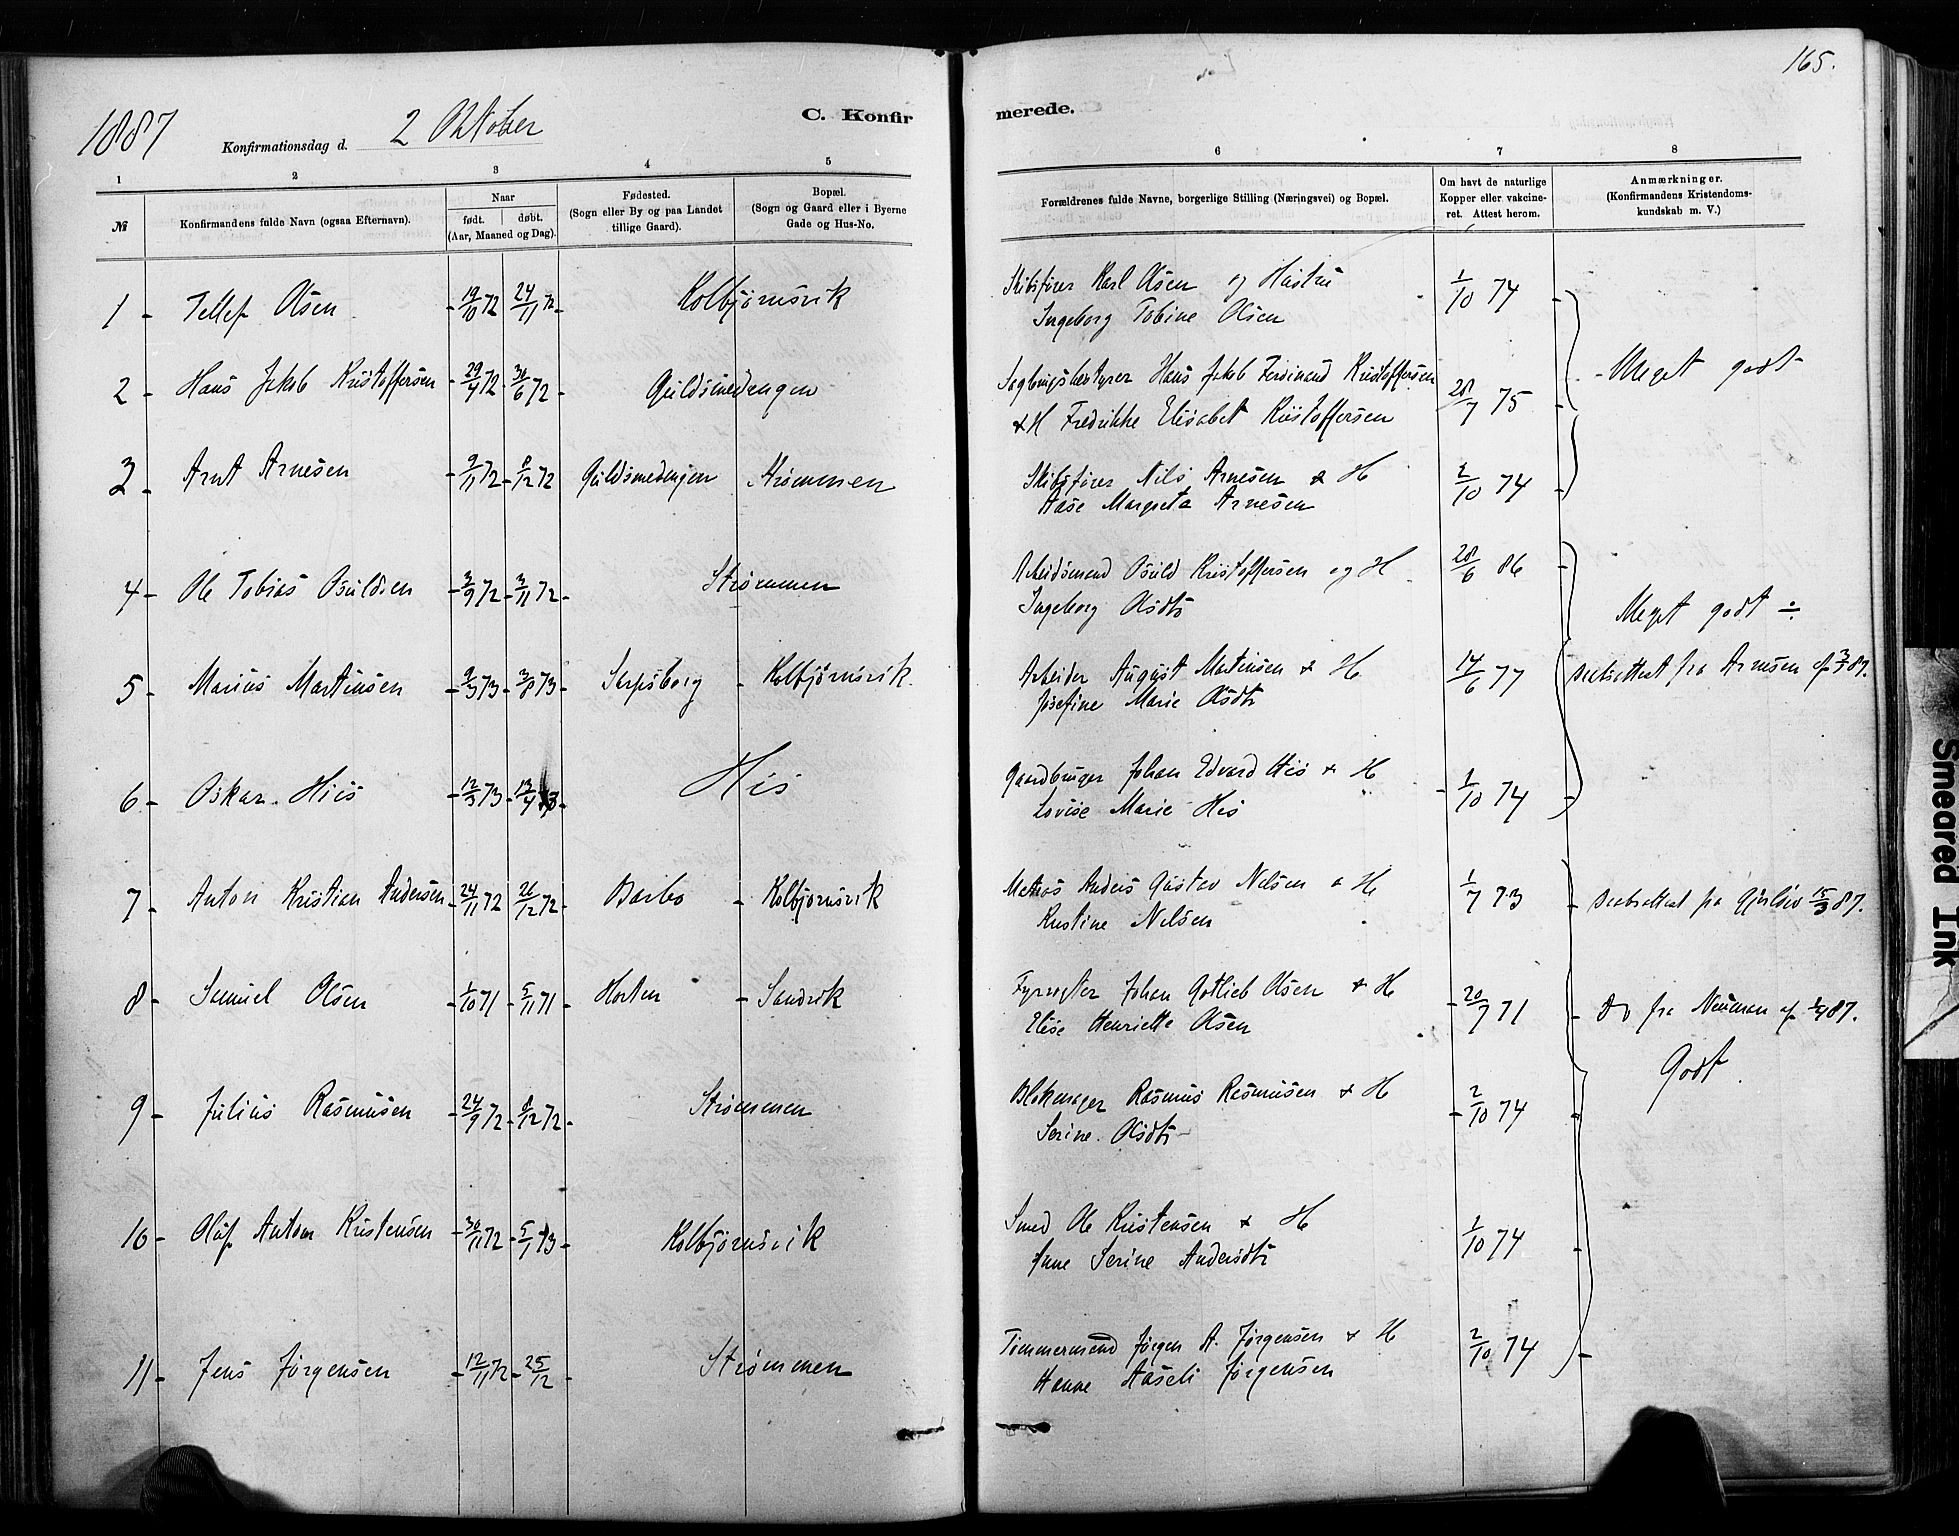 165.
1887
Konfirmationsdag d. 2 Oktober
C. Konfirmerede.
1 2 3 4 5 6 7 8
№
Konfirmandens fulde Navn (ogsaa Efternavn).
Naar
født. døbt.
(Aar, Maaned og Dag).
Fødested.
(Sogn eller By og paa Landet
tillige Gaard).
Bopæl.
(Sogn og Gaard eller i Byerne
Gade og Hus-No.
Forældrenes fulde Navne, borgerlige Stilling (Næringsvei) og Bopæl.
Om havt de naturlige
Kopper eller vakcine-
ret. Attest herom.
Anmærkninger.
(Konfirmandens Kristendoms-
kundskab m. V.)
1 - Tellef Olsen - 19/10 72 24/11 72 - Kolbjørnsvik Skibsfører Karl Olsen og Hustru 1/10 74
Ingeborg Tobine Olsen
2 - Hans Jakob Kristoffersen - 29/4 72 30/6 72 - Guldsmedengen Sagbrugsbestyrer Hans Jakob Ferdinand Kristoffersen 28/7 75 - Meget godt -
& H Fredrikke Elisabet Kristoffersen
3 - Arnt Arnesen - 9/11 72 - 8/12 72 Guldsmedengen Strømmen Skibsfører Nils Arnesen & H 2/10 74
Aase Margreta Arnesen
4 - Ole Tobias Osuldsen - 3/9 72 - 3/11 72 - Strømmen Arbeidsmand Osuld Kristoffersen og H 28/6 86
Ingeborg Olsdtr
Meget godt ÷
5 - Marius Martinsen - 2/3 73 - 3/8 73 - Sarpsborg - Kolbjørnsvik. Arbeider August Martinsen & H 14/6 77 Daabsattest fra Arnesen af 3/3 87.
Josefine Marie Olsdtr
6 - Oskar His - 12/3 73 - 13/4 73 - His Gaardbruger Johan Edvard His & H 1/10 74
Lovise Marie His
7 - Anton Kristian Andersen - 24/11 72 26/12 72 - Barbo - Kolbjørnsvik Matros Anders Gustav Nelsen & H 1/7 73 Daabsattest fra 15/3 87.
Kristine Nelsen
8 - Samuel Olsen - 1/10 71 - 5/11 71 - Horten - Sandvik Fyrvogter Johan Gotlieb Olsen & H - 20/7 71 - Do fra Neuman af 87.
Elise Henriette Olsen
Godt
9 - Julius Rasmussen - 24/9 72 - 8/12 72 - Strømmen Blokmager Rasmus Rasmussen & H - 2/10 74
Serine Olsdtr
10 - Oluf Anton Kristensen - 30/11 72 - 5/1 73 - Kolbjørnsvik Smed Ole Kristensen & H 1/10 74
Anne Serine Andersdtr
11 - Jens Jørgensen - 12/11 72 - 25/12 - Strømmen Tømmermand Jørgen A. Jørgensen & H 2/10 74
Hanne Aaseli Jørgensen
Smeared Ink